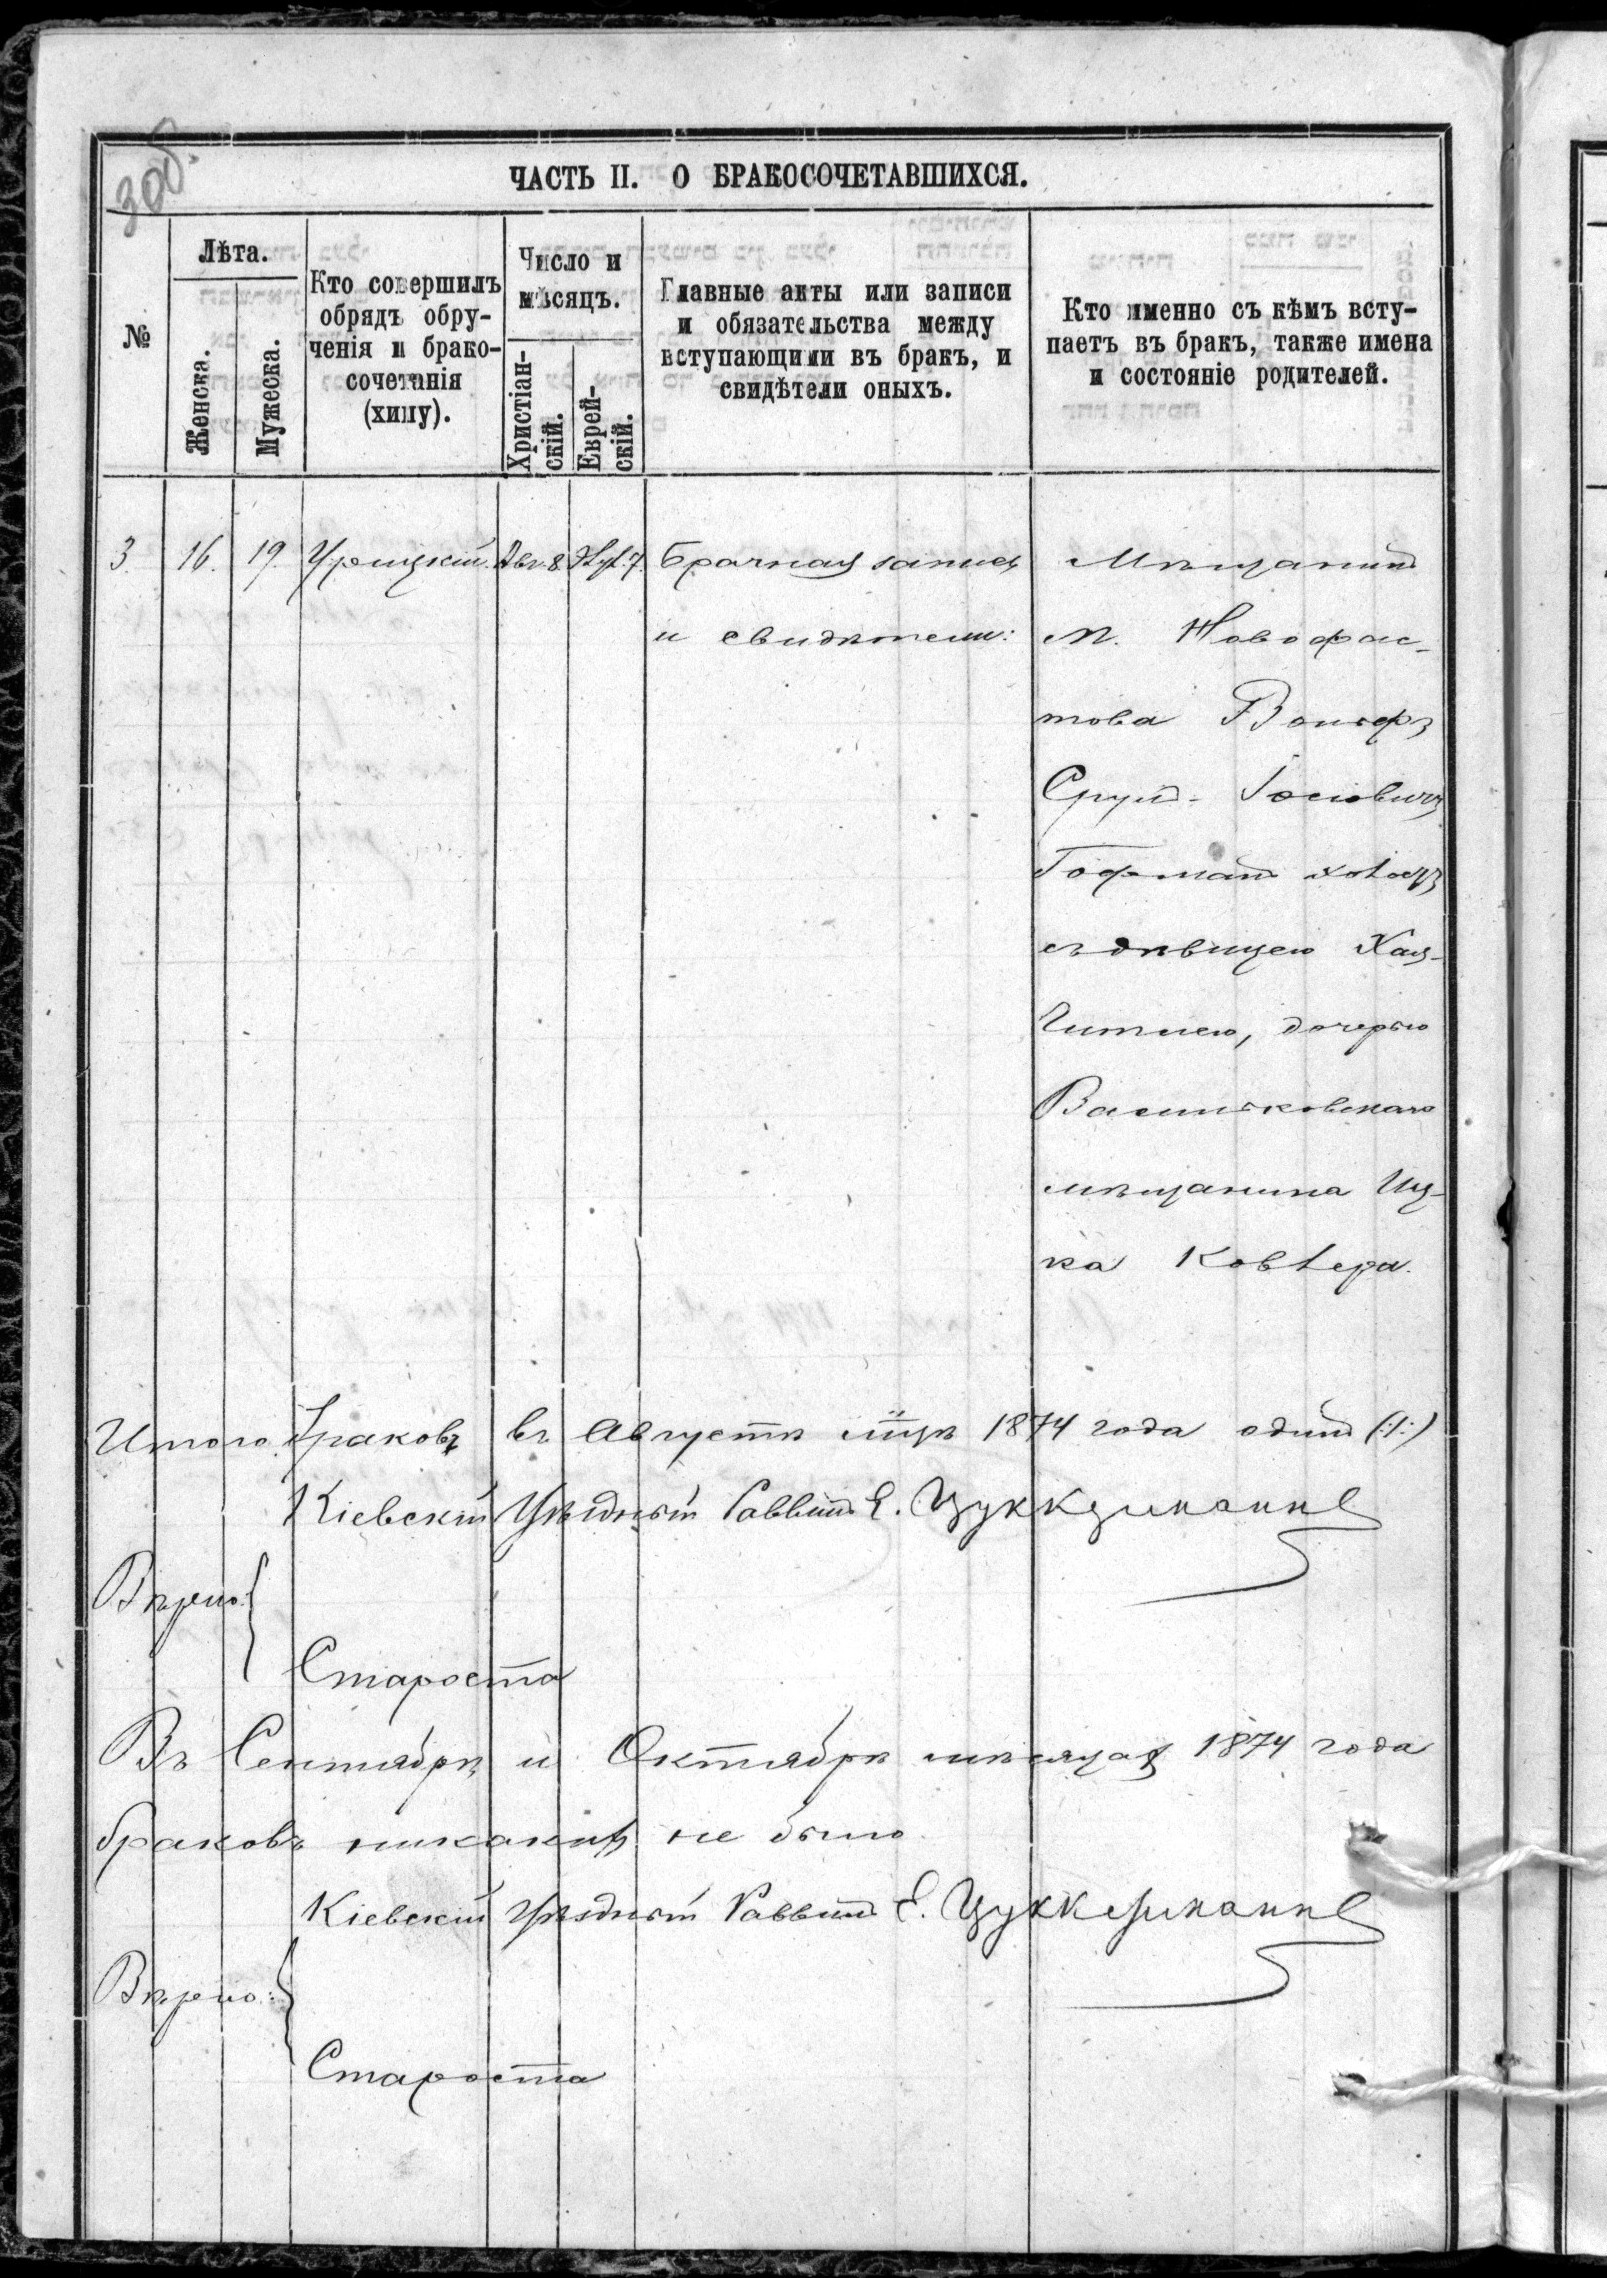 300.
ЧАСТЬ II. О БРАКОСОЧЕТАВШИХСЯ.
№
Лѣта.
Женска.
Мужеска.
Кто совершилъ
обрядъ обру-
ченія и брако-
сочетанія
(хипу).
Число и
мѣсяцъ.
Христіан-
скій.
Еврей-
скій.
Главные акты или записи
и обязательства между
вступающими въ бракъ, и
свидѣтели оныхъ.
Кто именно съ кѣмъ всту-
паетъ въ бракъ, также имена
и состояніе родителей.
3. 16. 19. Урицкій. Авг. 8. 7. Брачная запись Мѣщанинъ
и свидѣтели: м. Новофас-
това Вольфъ
Сруль Іосіовичъ
Гофманъ холостъ
съ дѣвицею Хая-
Гитлею, дочерью
Васильковскаго
мѣщанина Иц-
ка Ковлера.
Итого браковъ въ Августѣ мцѣ 1874 года одинъ (:1:)
Кіевскій Уѣздный Раввинъ Е. Цуккерманнъ
Вѣрно:
Староста
Въ Сентябрѣ и Октябрѣ мѣсяцах 1874 года
браковъ никакихъ не было.
Кіевскій Уѣздный Раввинъ Е. Цуккерманнъ
Вѣрно:
Староста